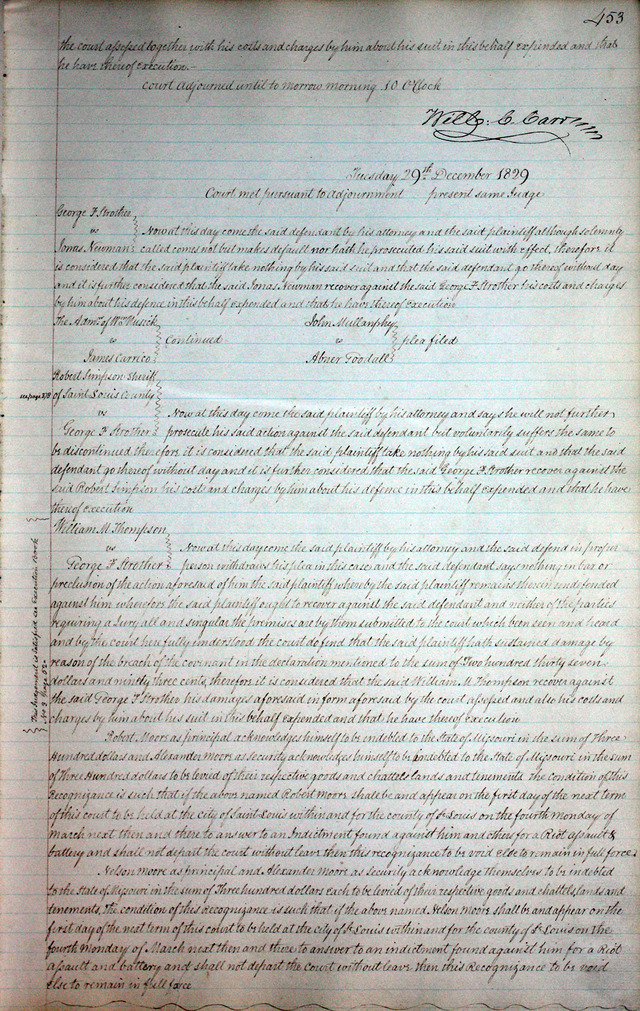 453
the court assessed together with his costs and charges by him about his suit in this behalf expended and that
he have thereof execution.—
Court adjourned until to morrow morning 10 O'Clock
Will: C. Carr
Tuesday 29th December 1829
Court met pursuant to adjournment present same Judge
George F Strother
vs Now at this day come the said defendant by his attorney and the said plaintiff although solemnly
Jonas Newman called comes not but makes default nor hath he prosecuted his said suit with effect, therefore it
is considered that the said plaintiff take nothing by his said suit and that the said defendant go thereof without day
and it is further considered that the said Jonas Newman recover against the said George F Strother his costs and charges
by him about his defence in this behalf expended and that he have thereof execution
The Admr of Wm Musick John Mullanphy
vs Continued vs plea filed
James Carrico Abner Goodall
Robert Simpson Sheriff
see page 378 of Saint Louis County
vs Now at this day come the said plaintiff by his attorney and says he will not further
George F Strother prosecute his said action against the said defendant but voluntarily suffers the same to
be discontinued therefore it is considered that the said plaintiff take nothing by his said suit and that the said
defendant go thereof without day and it is further considered that the said George F. Strother recover against the
said Robert Simpson his costs and charges by him about his defence in this behalf expended and that he have
thereof execution
William M Thompson
vs Now at this day come the said plaintiff by his attorney and the said defend in proper
George F Strother person withdraws his plea in this case and the said defendant says nothing in bar or
preclusion of the action aforesaid of him the said plaintiff whereby the said plaintiff remains therein undefended
against him wherefore the said plaintiff ought to recover against the said defendant and neither of the parties
requiring a Jury, all and singular the premises are by them submitted to the court which been seen and heard
and by the court here fully understood the court do find that the said plaintiff hath sustained damage by
reason of the breach of the covenant in the declaration mentioned to the sum of Two hundred thirty seven
dollars and ninety three cents, therefore it is considered that the said William M Thompson recover against
the said George F Strother his damages aforesaid in form aforesaid by the court assessed and also his costs and
charges by him about his suit in this behalf expended and that he have thereof execution
This Judgment is Satisfied see Execution Book
No 3 page
Robert Moore as principal acknowledges himself to be indebted to the State of Missouri in the sum of Three
Hundred dollars and Alexander Moore as security acknowledges himself to be indebted to the State of Missouri in the sum
of Three Hundred dollars to be levied of their respective goods and chattels lands and tenements the condition of this
Recognizance is such that if the above named Robert Moore shall be and appear on the first day of the next term
of this court to be held at the city of Saint Louis within and for the county of St Louis on the fourth monday of
March next then and there to answer to an Indictment found against him and others for a Riot assault &
battery and shall not depart the court without leave then this recognizance to be void else to remain in full force.
Nelson Moore as principal and Alexander Moore as security acknowledge themselves to be indebted
to the State of Missouri in the sum of Three hundred dollars each to be levied of their respective goods and chattels, lands and
tenements, the condition of this Recognizance is such that if the above named Nelson Moore shall be and appear on the
first day of the next term of this court to be held at the city of St Louis within and for the county of St. Louis on the
fourth monday of March next then and there to answer to an indictment found against him for a Riot
assault and battery and shall not depart the court without leave then this Recognizance to be void
else to remain in full force